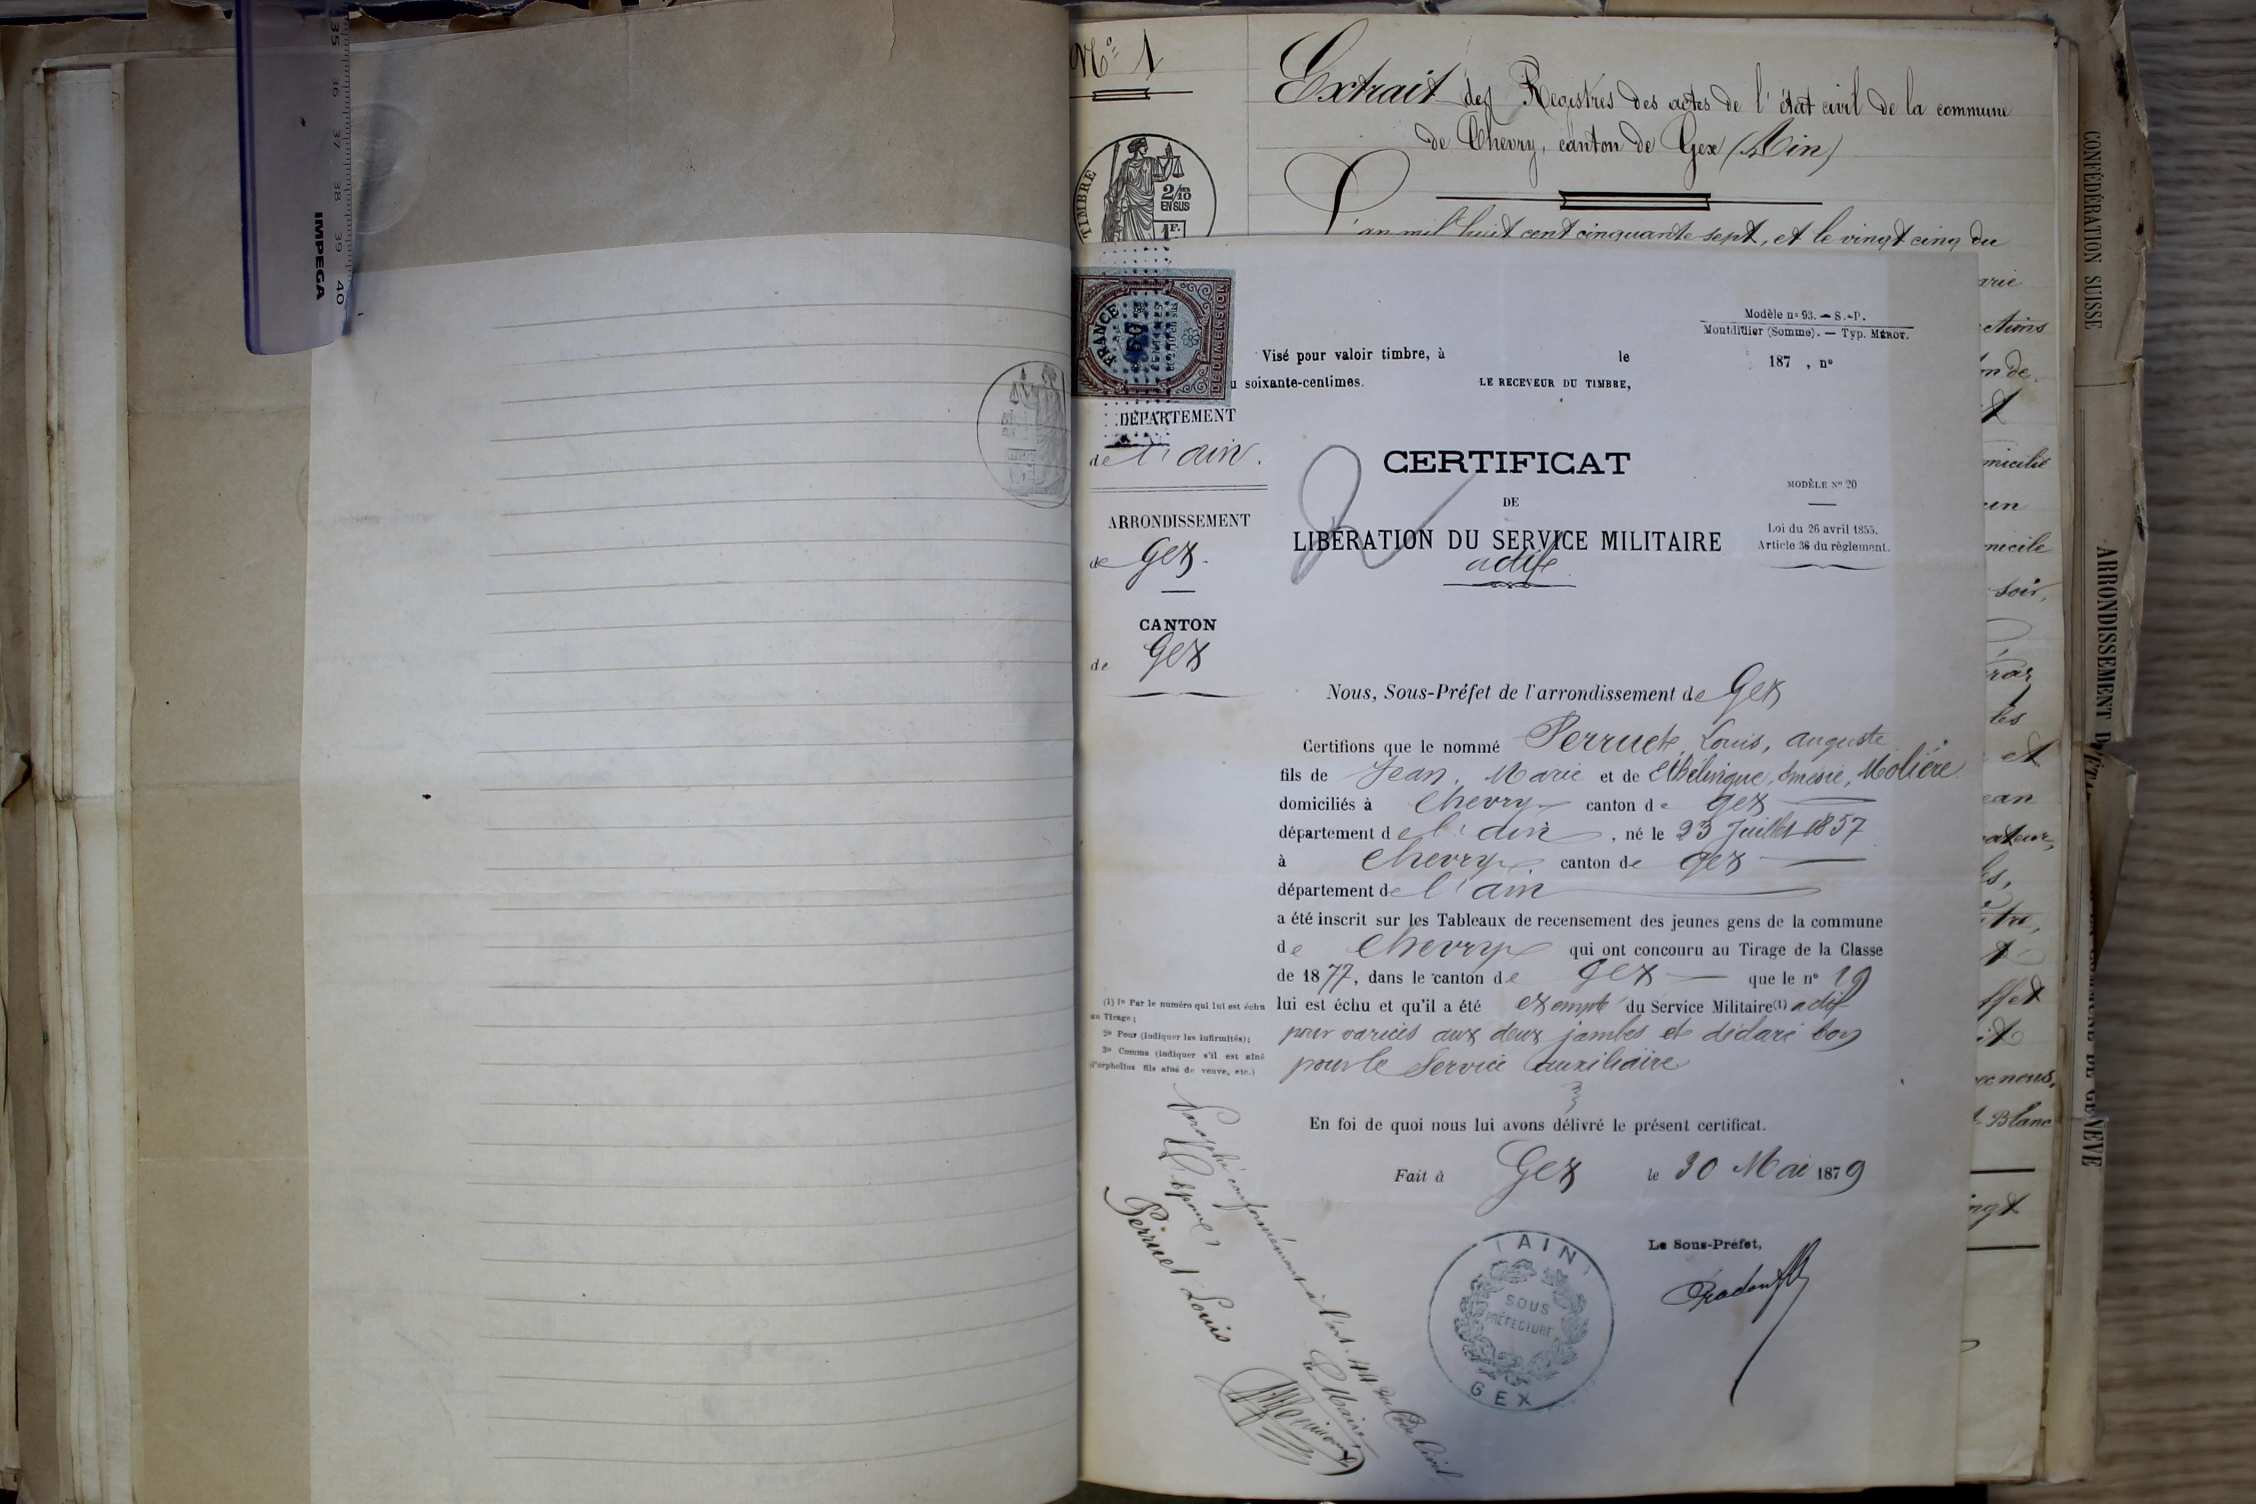 35 36 37 38 39 40
IMPEGA
Nº 1
Extrait des Registres des actes de l'état civil de la commune
de Chevry, canton de Gex (Ain)
TIMBRE
2/10
EN SUS
1 F.
L'an mil huit cent cinquante sept, et le vingt cinq du
FRANCE
60
CENTIMES
DE DIMENSION
Modèle nº 93. — S.-P.
Montdidier (Somme). — Typ. MÉROT.
Visé pour valoir timbre, à le 187 , nº
soixante-centimes. LE RECEVEUR DU TIMBRE,
DÉPARTEMENT
de l'ain.
ARRONDISSEMENT
de Gex.
CANTON
de Gex
CERTIFICAT
DE
LIBÉRATION DU SERVICE MILITAIRE
actif
MODÈLE Nº 20
Loi du 26 avril 1855.
Article 36 du règlement.
Nous, Sous-Préfet de l'arrondissement de Gex
Certifions que le nommé Perruet, Louis, auguste
fils de Jean, Marie et de Molière
domiciliés à Chevry canton de Gex
département de l'ain, né le 23 Juillet 1857
à Chevry canton de Gex
département de l'ain
a été inscrit sur les Tableaux de recensement des jeunes gens de la commune
de Chevry qui ont concouru au Tirage de la Classe
de 1877, dans le canton de Gex que le nº 19
lui est échu et qu'il a été exempté du Service Militaire (1) actif
pour varices aux deux jambes et déclaré bon
pour le Service auxiliaire
(1) 1º Par le numéro qui lui est échu
au Tirage;
2º Pour (indiquer les infirmités);
3º Comme (indiquer s'il est aîné
d'orphelins fils aîné de veuve, etc.)
En foi de quoi nous lui avons délivré le présent certificat.
Fait à Gex le 30 Mai 1879
Le Sous-Préfet,
AIN
SOUS
PRÉFECTURE
GEX
Paraphé conformément à l'art. 44 du Code Civil
L'Epoux
Perruet Louis
Le Maire
arie
ctions
on de
micilié
un
micile
soir,
les
et
ean
ateur,
effet
nous,
Blanc
ingt
CONFÉDÉRATION SUISSE
ARRONDISSEMENT
DE GENÈVE